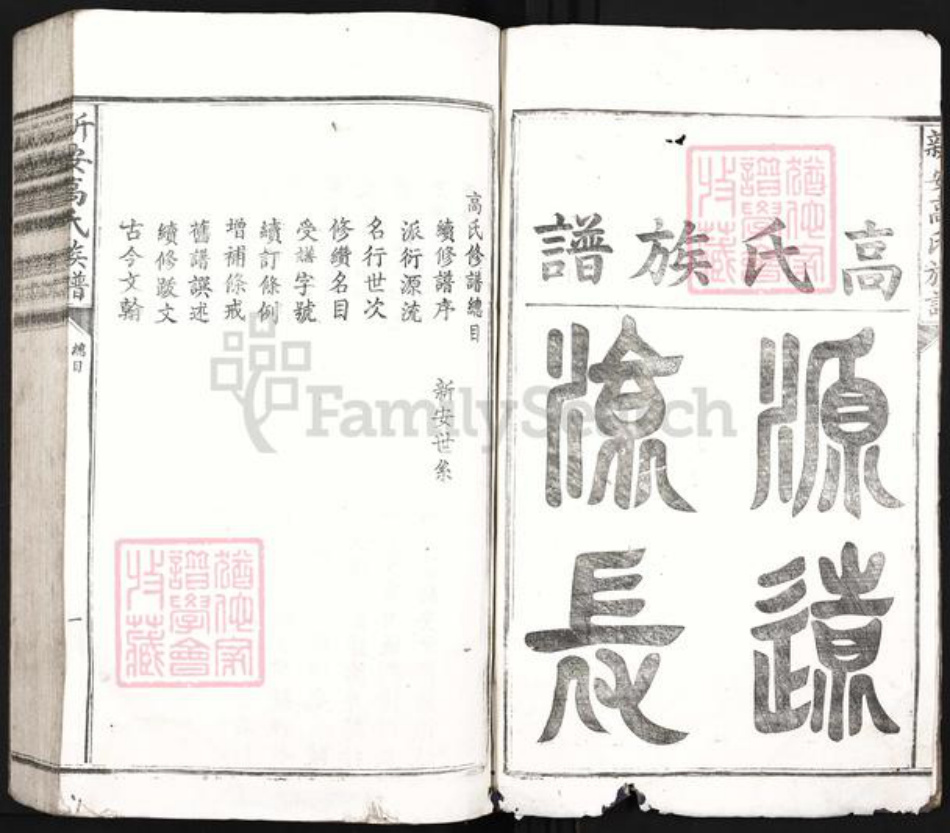 高氏族譜
源遠
流長
新安高氏族譜
高氏修譜總目
續修譜序 新安世系
派衍源流
名行世次
修纘名目
受譜字號
續訂條例
增補條戒
舊譜譔述
續修跋文
古今文翰
新安高氏族譜
總目
一
猶他家譜學會收藏
猶他家譜學會收藏
FamilySearch